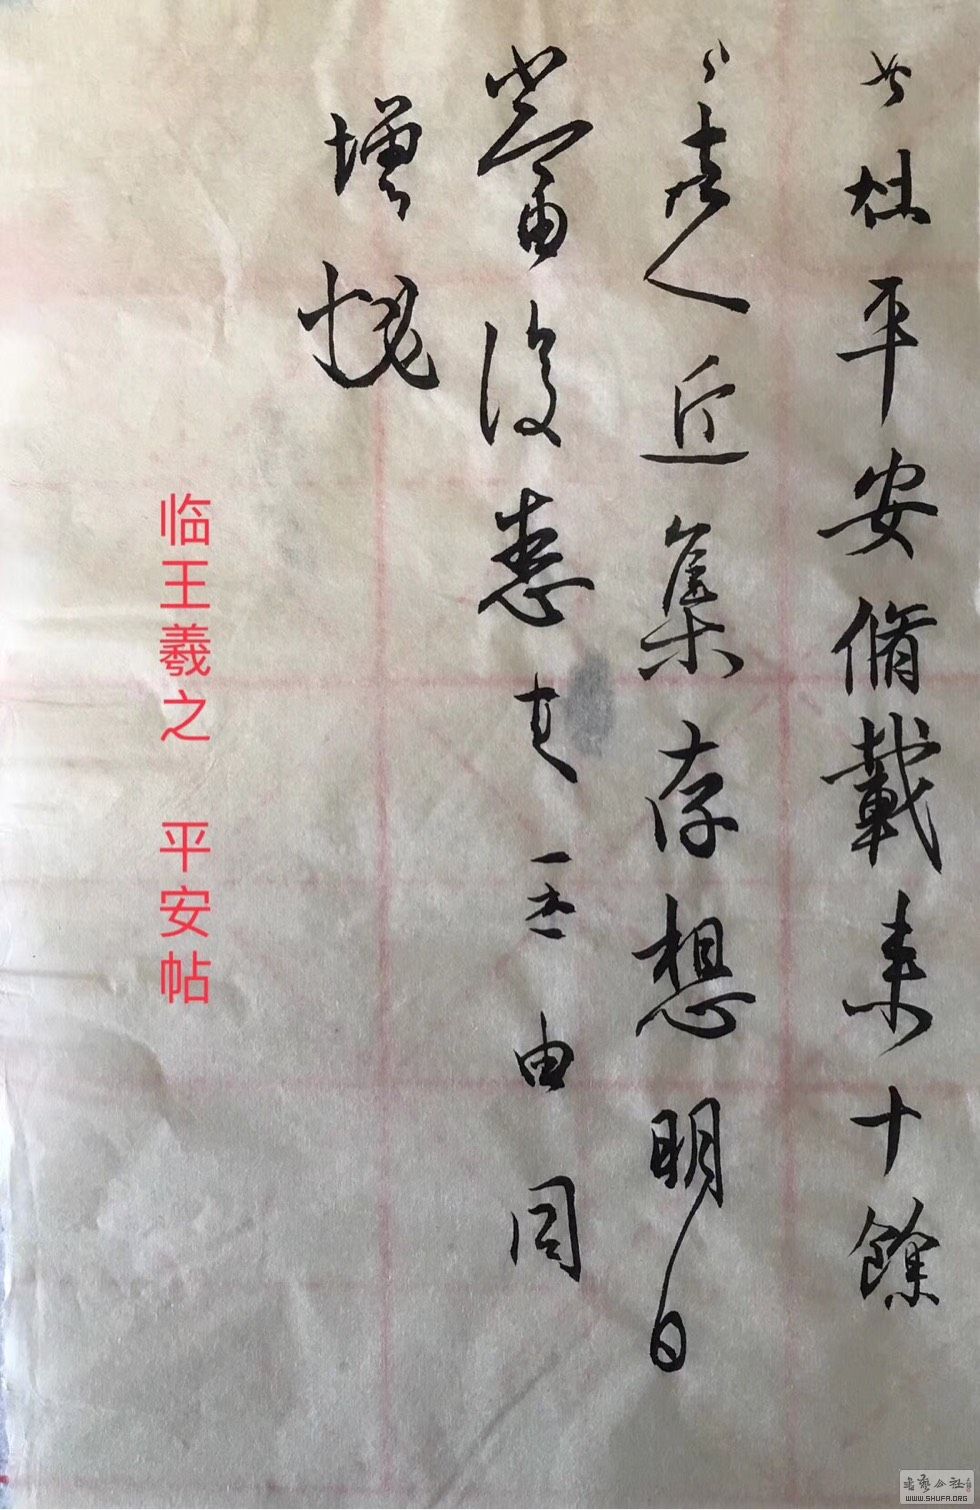 此粗平安脩載来十餘
日諸人近集存想明日
當復悉来無由同
增慨
临王羲之 平安帖
書藝公社
WWW.SHUFA.ORG